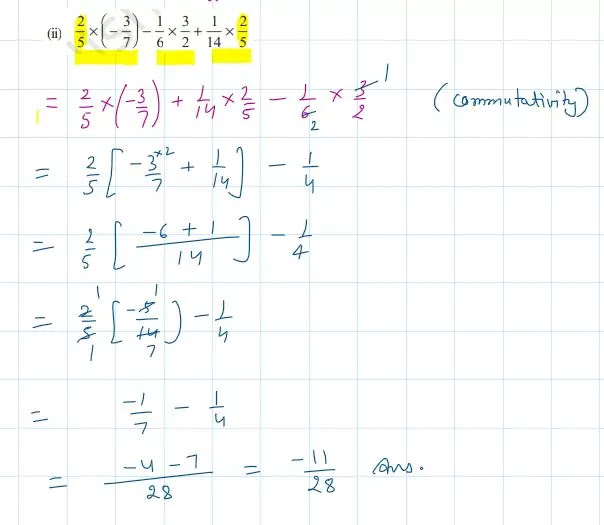 (ii) 2/5 × (− 3/7) − 1/6 × 3/2 + 1/14 × 2/5
= 2/5 × (−3/7) + 1/14 × 2/5 − 1/6 2 × 3/2 1 (commutativity)
= 2/5 [ −3 ×2/7 + 1/14 ] − 1/4
= 2/5 [ −6 + 1/14 ] − 1/4
= 2 1/5 1 [ −5 1/14 7 ) − 1/4
= −1/7 − 1/4
= −4 − 7/28 = −11/28 Ans.